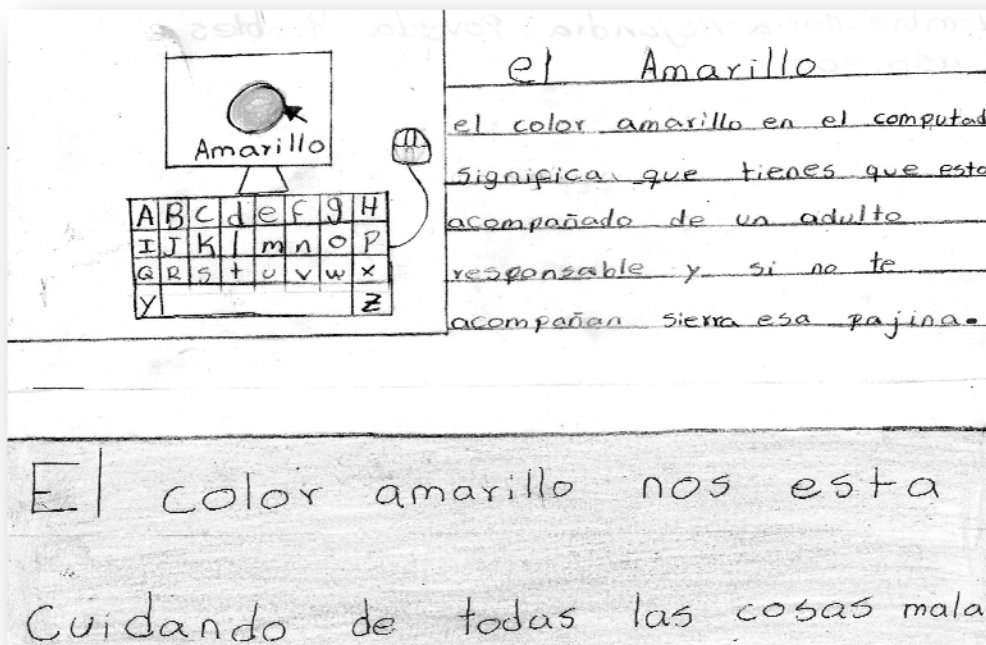 Amarillo
A B C d e f g H
I J K l m n o P
Q R S t u v w x
Y Z
el Amarillo
el color amarillo en el computad
significa que tienes que esta
acompañado de un adulto
responsable y si no te
acompañan sierra esa pajina.
El color amarillo nos esta
Cuidando de todas las cosas mala